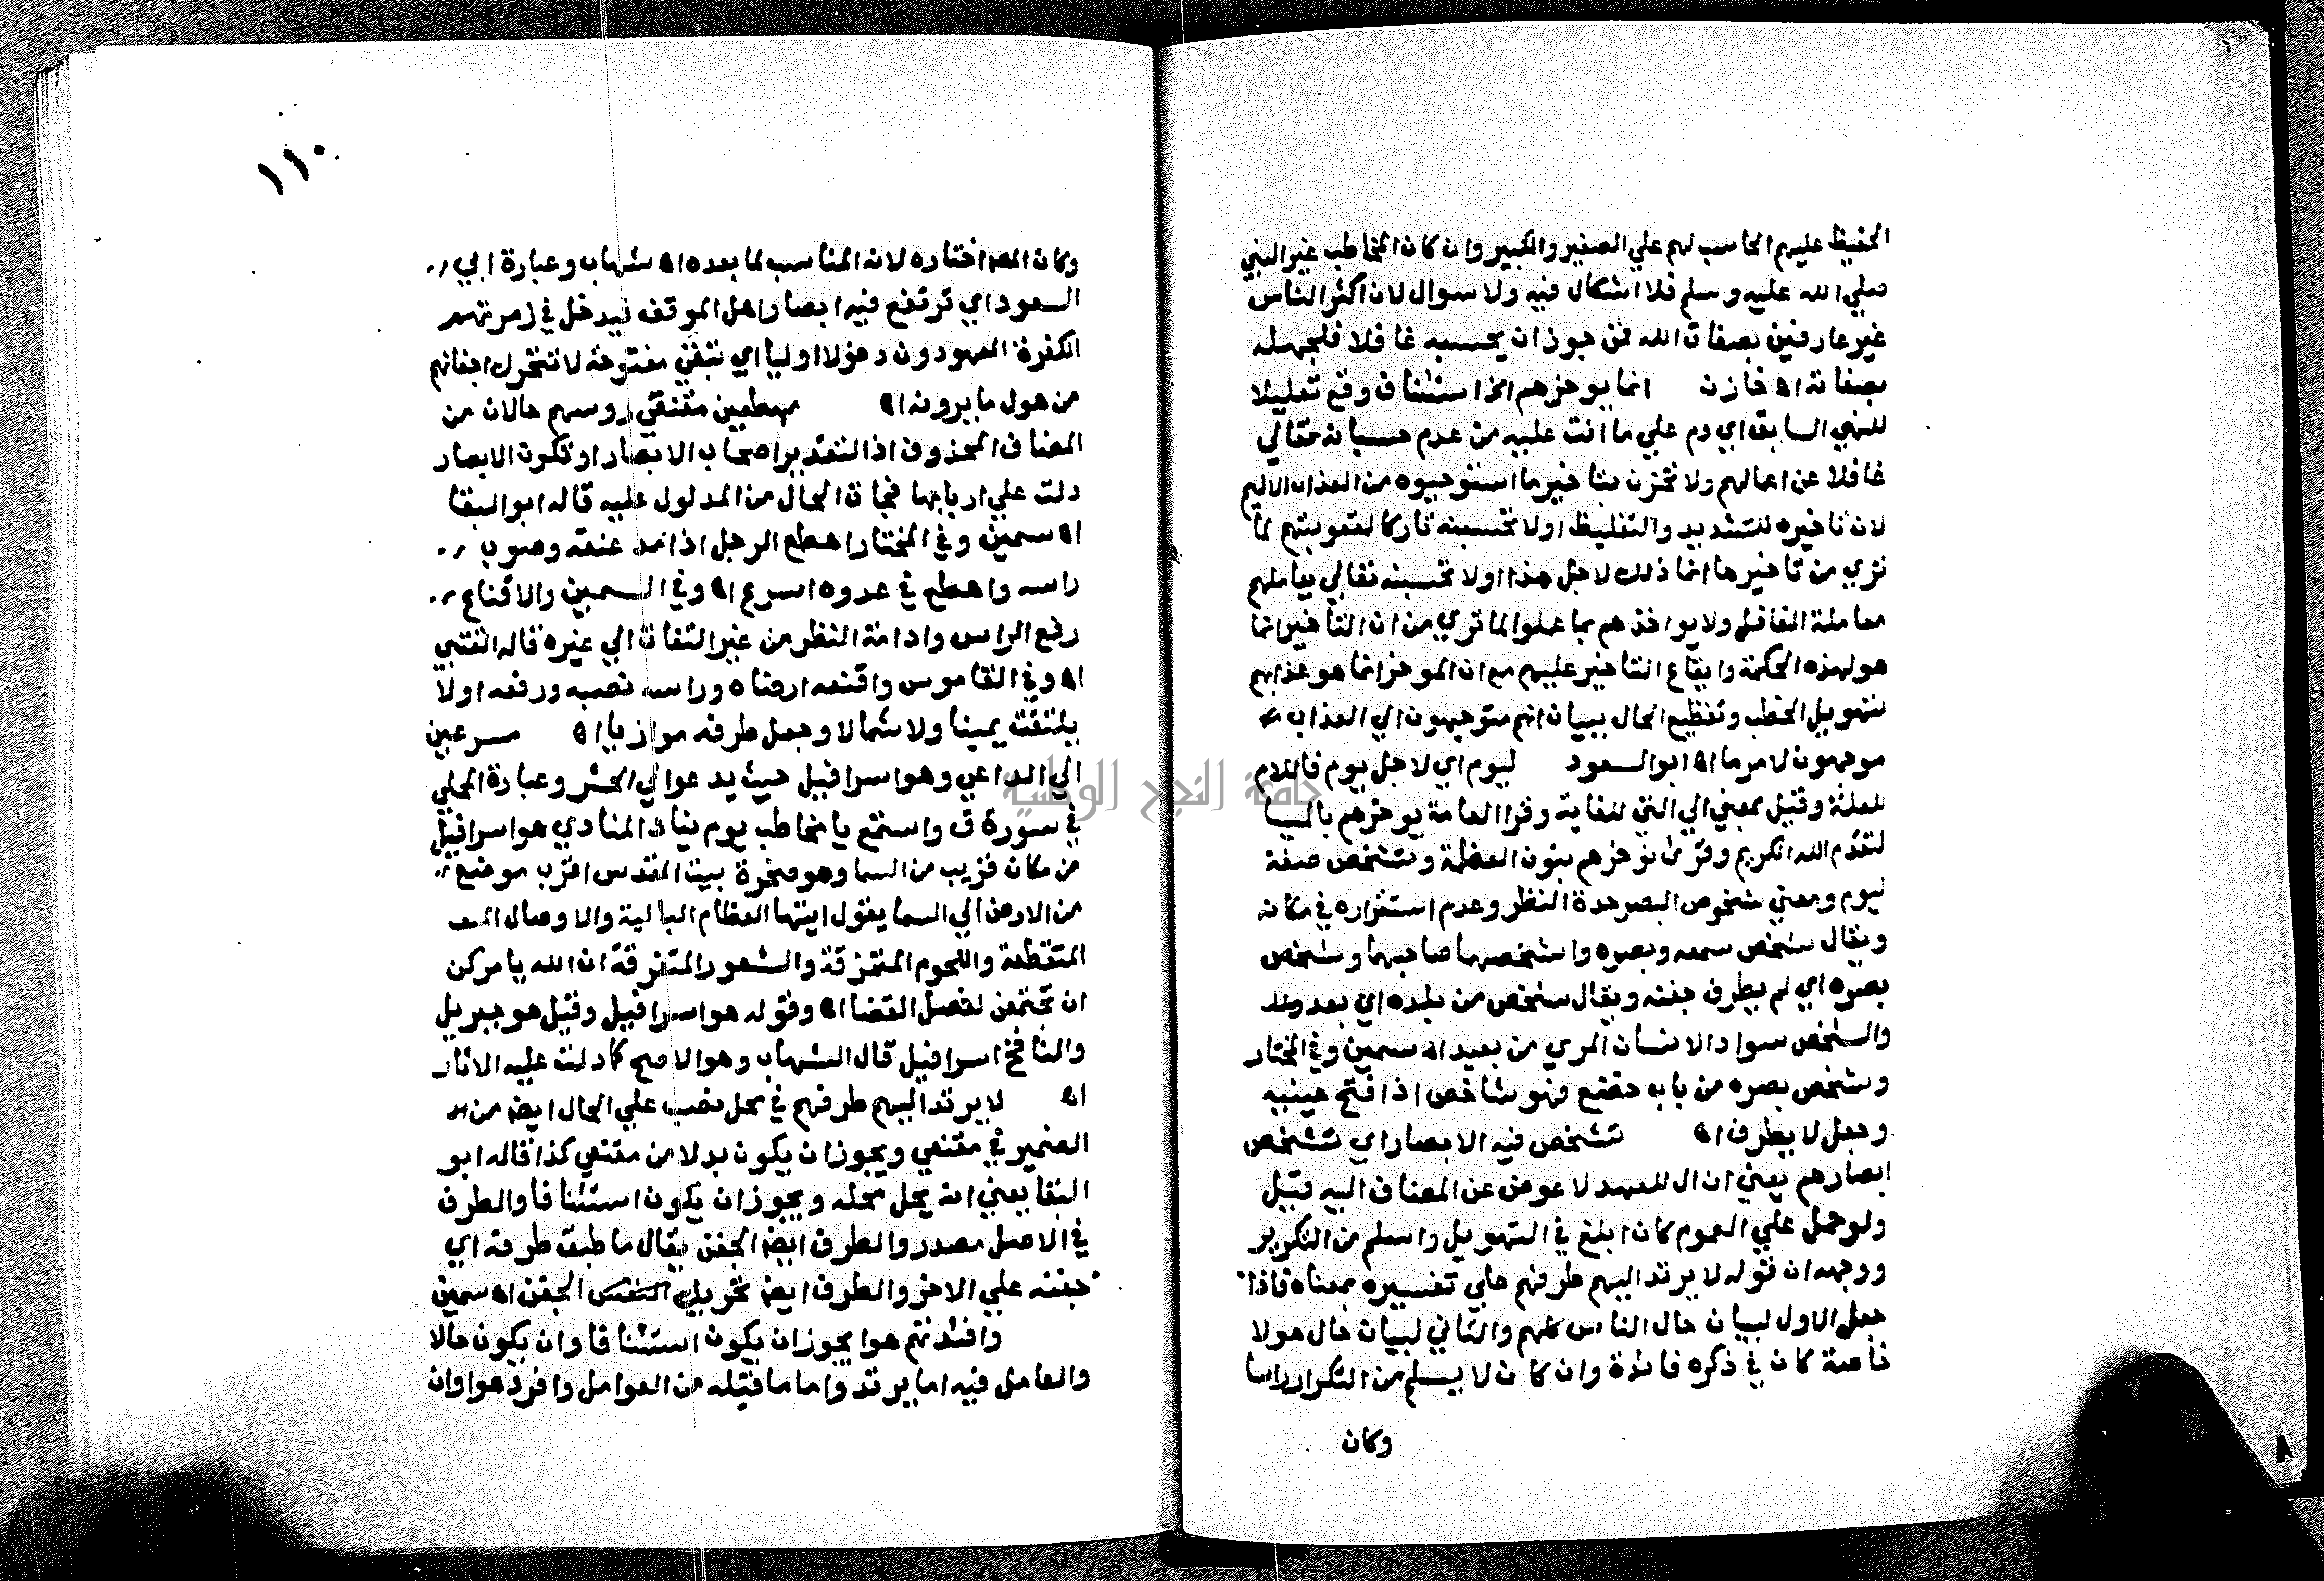 الحفيظ عليهم المحاسب لهم علي الصغير والكبير وان كان المخاطب غير النبي
صلي الله عليه وسلم فلا اشكال فيه ولا سوال لان اكثر الناس
غير عارفين بصفات الله فمن جوز ان يحسبه غافلا فلجهله
بصفاته اه خازن انما يوخرهم الخ استئناف وقع تعليلا
للنهي السابق اي دم علي ما انت عليه من عدم حسبانه تعالي
غافلا عن اعمالهم ولا تحزن بتاخير ما استوجبوه من العذاب الاليم
لان تاخيره للتشديد والتغليظ اولا تحسبنه تاركا لعقوبتهم لما
تري من تاخيرها انما ذلك لاجل هذا اولا تحسبنه تعالي يعاملهم
معاملة الغافل ولا يواخذهم بما عملوا لما تري من ان التاخير انما
هو لهذه الحكمة وايقاع التاخير عليهم مع ان الموخر انما هو عذابهم
لتهويل الخطب وتفظيع الحال ببيان انهم متوجهون الي العذاب
موجهون لامر ما اه ابو السعود ليوم اي لاجل يوم فاللام
للعلة وقيل بمعني الي التي للغاية وقرا العامة يوخرهم باليا
لتقدم الله الكريم وقرئ نوخرهم بنون العظمة وتشخص صفة
ليوم ومعني شخوص البصر حدة النظر وعدم استقراره في مكانه
ويقال شخص سمعه وبصره واشخصهما صاحبهما وشخص
بصره اي لم يطرف جفنه ويقال شخص من بلده اي بعد
والشخص سواد الانسان المري من بعيد اه سمين وفي المختار
وشخص بصره من باب خضع فهو شاخص اذا فتح عينيه
وجعل لا يطرف اه تشخص فيه الابصار اي تشخص
ابصارهم يعني ان ال للعهد لا عوض عن المضاف اليه قيل
ولو حمل علي العموم كان ابلغ في التهويل واسلم من التكرير
ووجهه ان قوله لا يرتد اليهم طرفهم علي تفسيره بمعناه فاذا
جعل الاول لبيان حال الناس كلهم والثاني لبيان حال هولا
خاصة كان في ذكره فائدة وان كان لا يسلم من التكرار راسا
وكان
١١٠
وكان المص اختاره لانه المناسب لما بعده اه شهاب وعبارة ابي
السعود اي ترتفع فيه ابصار اهل الموقف فيدخل في زمرتهم
الكفرة المعهودون دخولا اوليا اي تبقي مفتوحة لا تتحرك اجفانهم
من هول ما يرونه اه مهطعين مقنعي روسهم حالان من
المضاف المحذوف اذ التقدير اصحاب الابصار او تكون الابصار
دلت علي اربابها فجات الحال من المدلول عليه قاله ابو البقا
اه سمين وفي المختار اهطع الرجل اذا مد عنقه وصوب
راسه واهطع في عدوه اسرع اه وفي السمين والاقناع
رفع الراس وادامة النظر من غير التفات الي غيره قاله القتبي
اه وفي القاموس واقنعه ارضاه وراسه نصبه ورفعه اولا
يلتفت يمينا ولا شمالا وجعل طرفه موازيا اه مسرعين
الي الداعي وهو اسرافيل حيث يدعو الي الحشر وعبارة المحلي
في سورة ق واستمع يا مخاطب يوم يناد المنادي هو اسرافيل
من مكان قريب من السما وهو صخرة بيت المقدس اقرب موضع
من الارض الي السما يقول ايتها العظام البالية والاوصال
المتقطعة واللحوم المتمزقة والشعور المتفرقة ان الله يامركن
ان تجتمعن لفصل القضا اه وقوله هو اسرافيل وقيل هو جبريل
والنافخ اسرافيل قال الشهاب وهو الاصح كما دلت عليه الاثار
اه لا يرتد اليهم طرفهم في محل نصب علي الحال ايضا من
الضمير في مقنعي ويجوز ان يكون بدلا من مقنعي كذا قاله ابو
البقا يعني انه يحل محله ويجوز ان يكون استئنافا والطرف
في الاصل مصدر والطرف ايضا الجفن يقال ما طبق طرفه اي
جفنه علي الاخر والطرف ايضا تحريك الجفن اه سمين
وافئدتهم هوا يجوز ان يكون استئنافا وان يكون حالا
والعامل فيه اما يرتد واما ما قبله من العوامل وافرد هوا وان
جامعة النجاح الوطنية